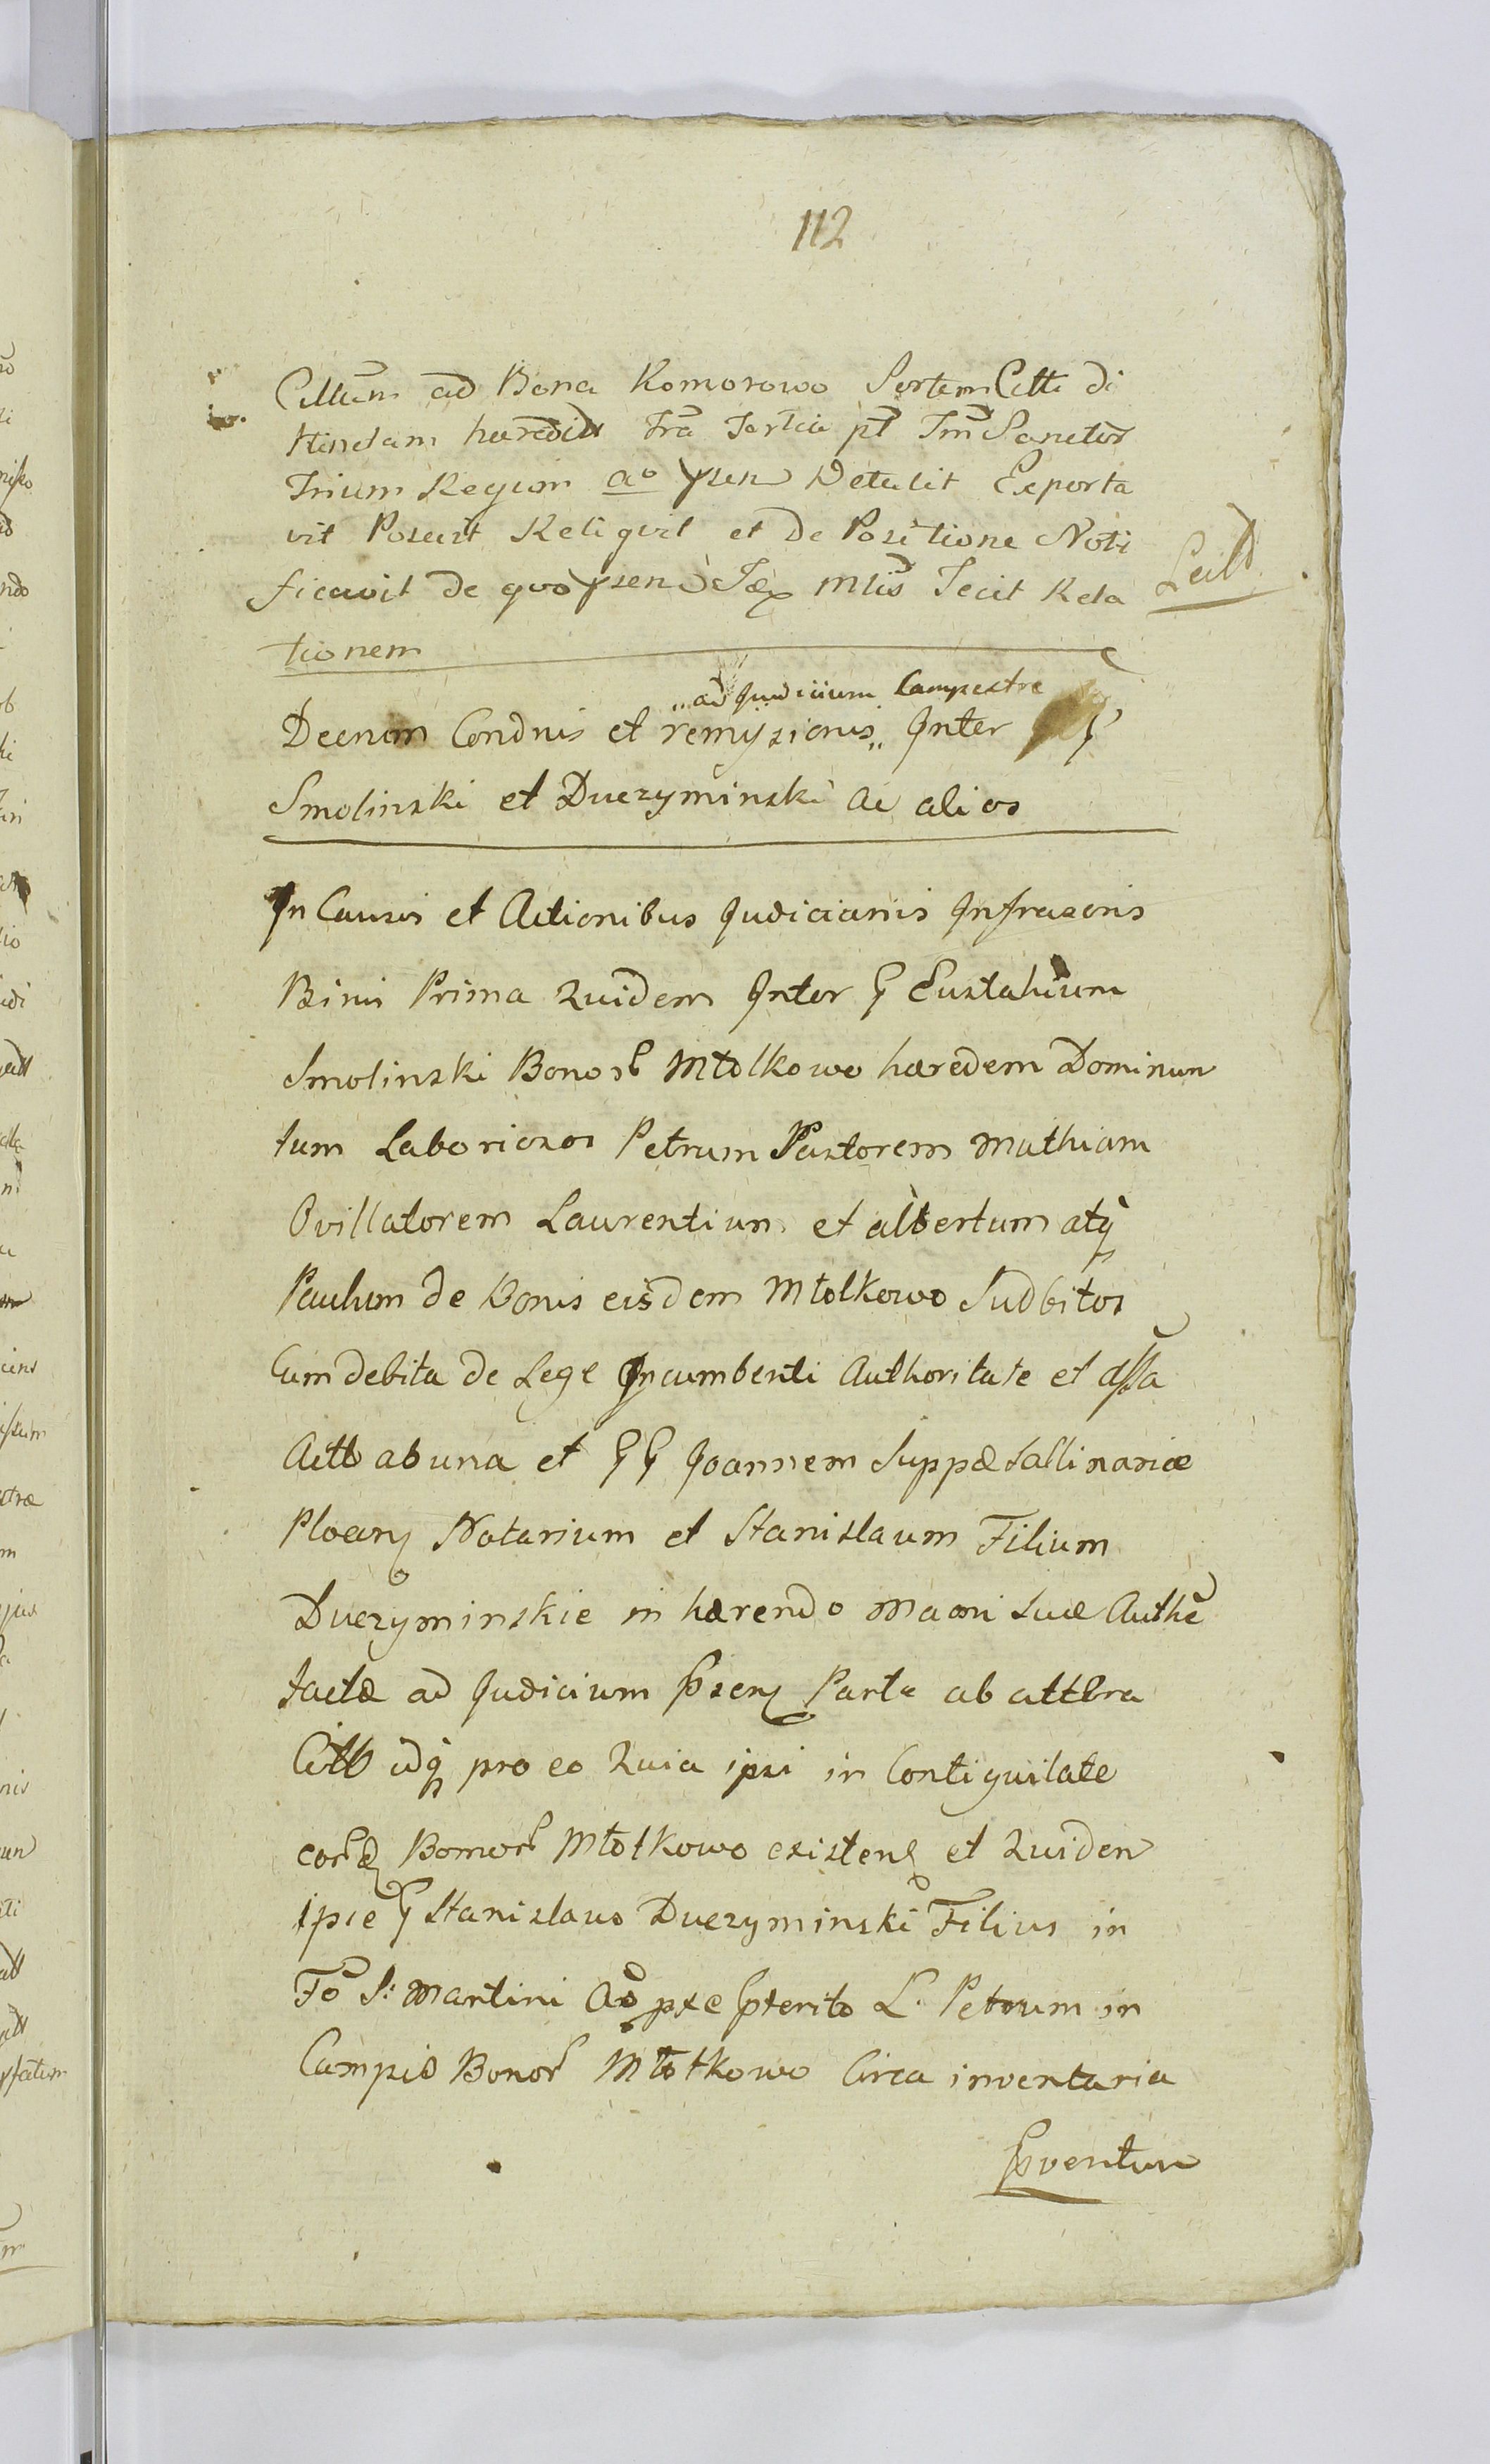 112
Cittum ad Bona Komorowo Sortem Citti di
stinctam haeredit Fra Tertia pt Fm Sanctor
Trium Regum ao psen Detulit Exporta
vit Posuit Reliqvit et de Positione Noti
ficavit de qvo psen Mtis Fecit Rela
tionem
ad Judicium Campestre
Decnum Condnis et remyszionis Inter
Smolinski et Duczyminski ac alios
In Causis et Actionibus Judicianis Infrascris
Binis Prima Quidem Inter G Eustahium
Smolinski Bonor Mtolkowo haeredem Dominum
tum Laboriosos Petrum Pastorem Mathiam
Ovillatorem Laurentium et albertum atq
Paulum de Bonis eisdem Mtolkowo Sudbitos
Cum debita de Lege Incumbenti Authoritate et assa
Actt ab una et GG Joannem Suppae Sallinariae
Plocen Notarium et Stanislaum Filium
Duczyminskie in haerendo Maoni Suae Authe
factae ad Judicium Psen Parte ab altera
Citt idq pro eo Quia ipsi in Contiguitate
eord Bonor Mtolkowo existen et Quidem
ipse G Stanislaus Duczyminski Filius in
Fo S: Martini Ao pxe Pterito L. Petrum in
Campis Bonor Mtotkowo Circa inventaria
Pventum